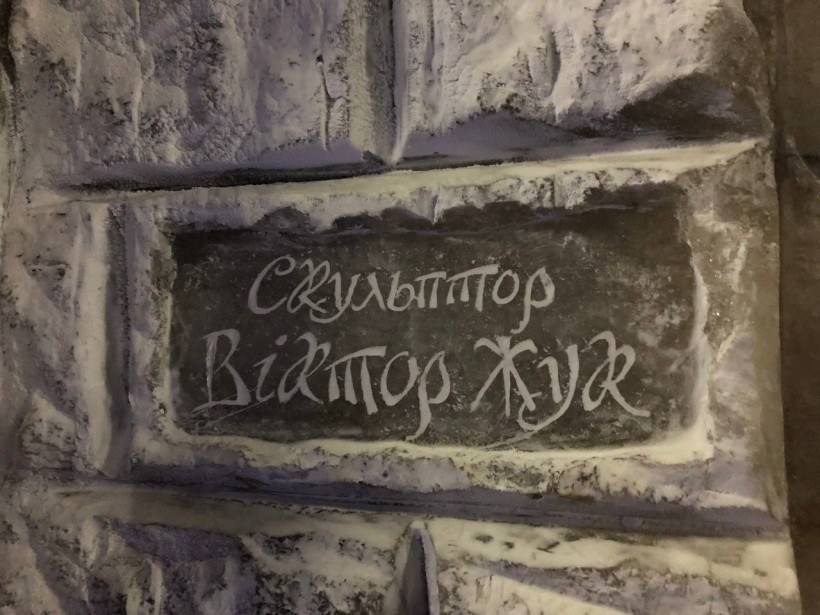 Скульптор
Віктор Жук